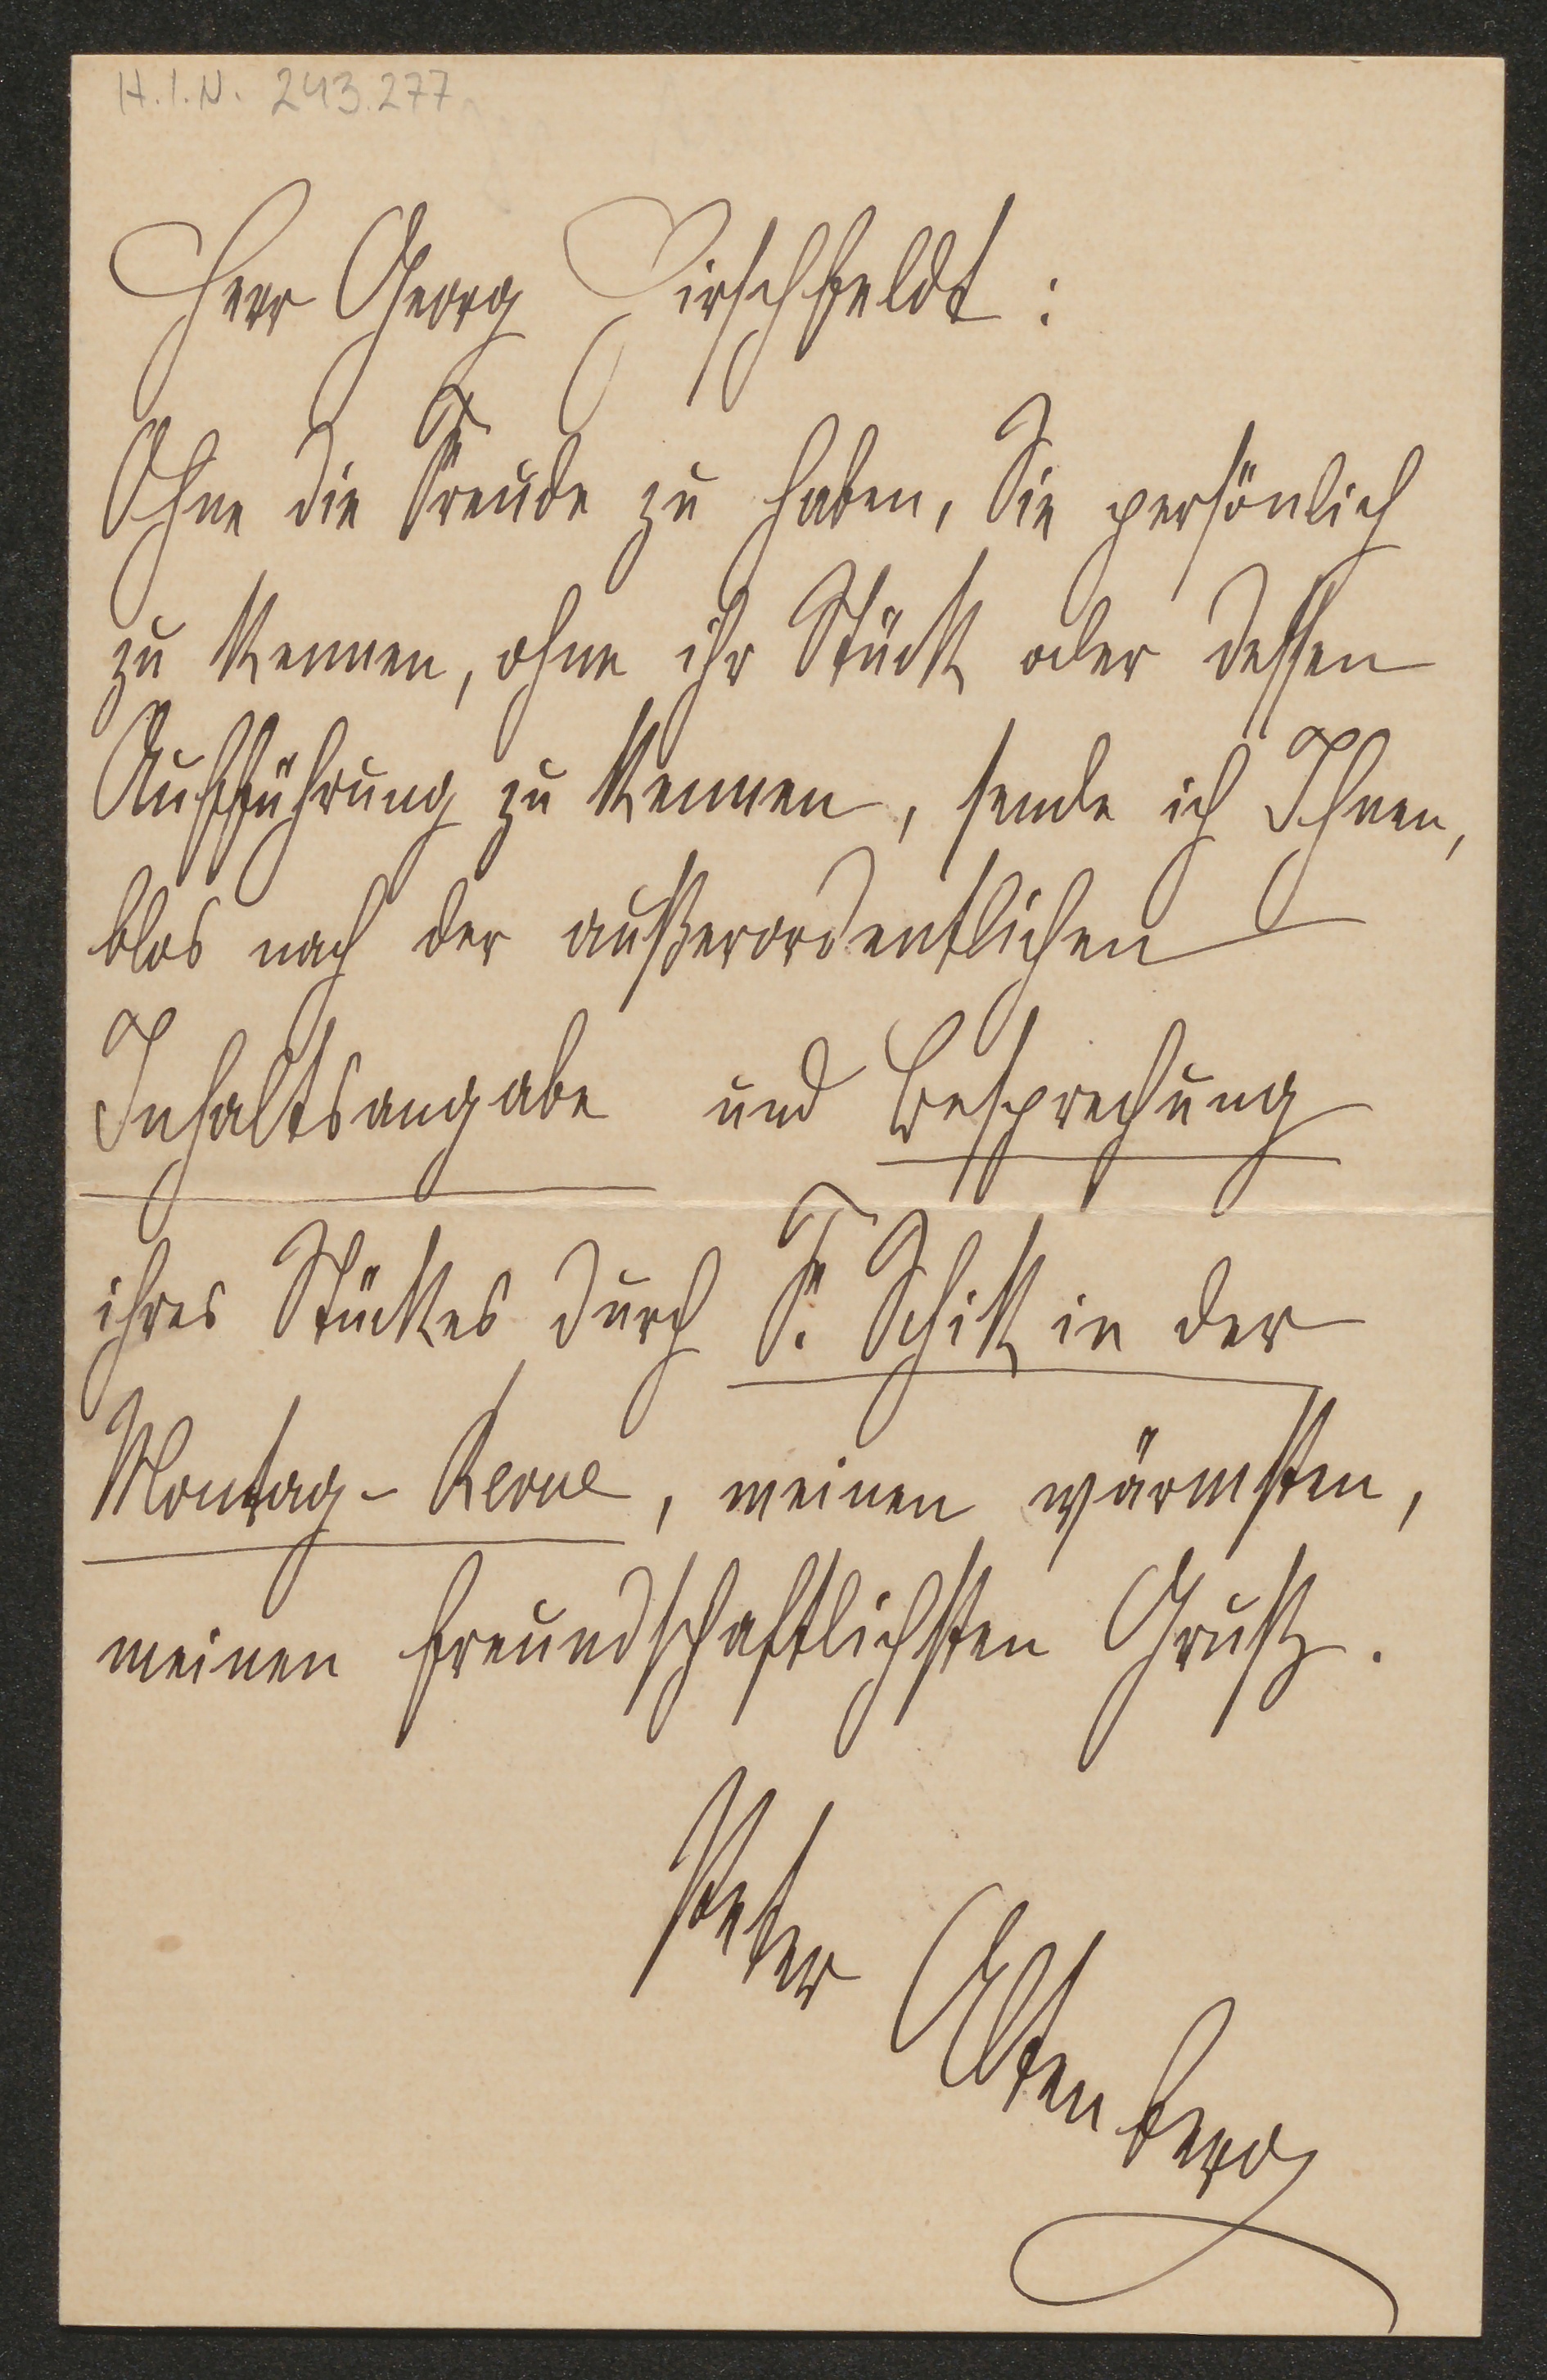 H.I.N. 243.277
Herr Georg Hirschfeldt:
Ohne die Freude zu haben, Sie persönlich
zu kennen, ohne ihr Stück oder dessen
Aufführung zu kennen, sende ich Ihnen,
blos nach der außerordentlichen
Inhaltsangabe und Besprechung
ihres Stückes durch F. Schik in der
Montag-Revue, meinen wärmsten,
meinen freundschaftlichsten Gruß.
Peter Altenberg